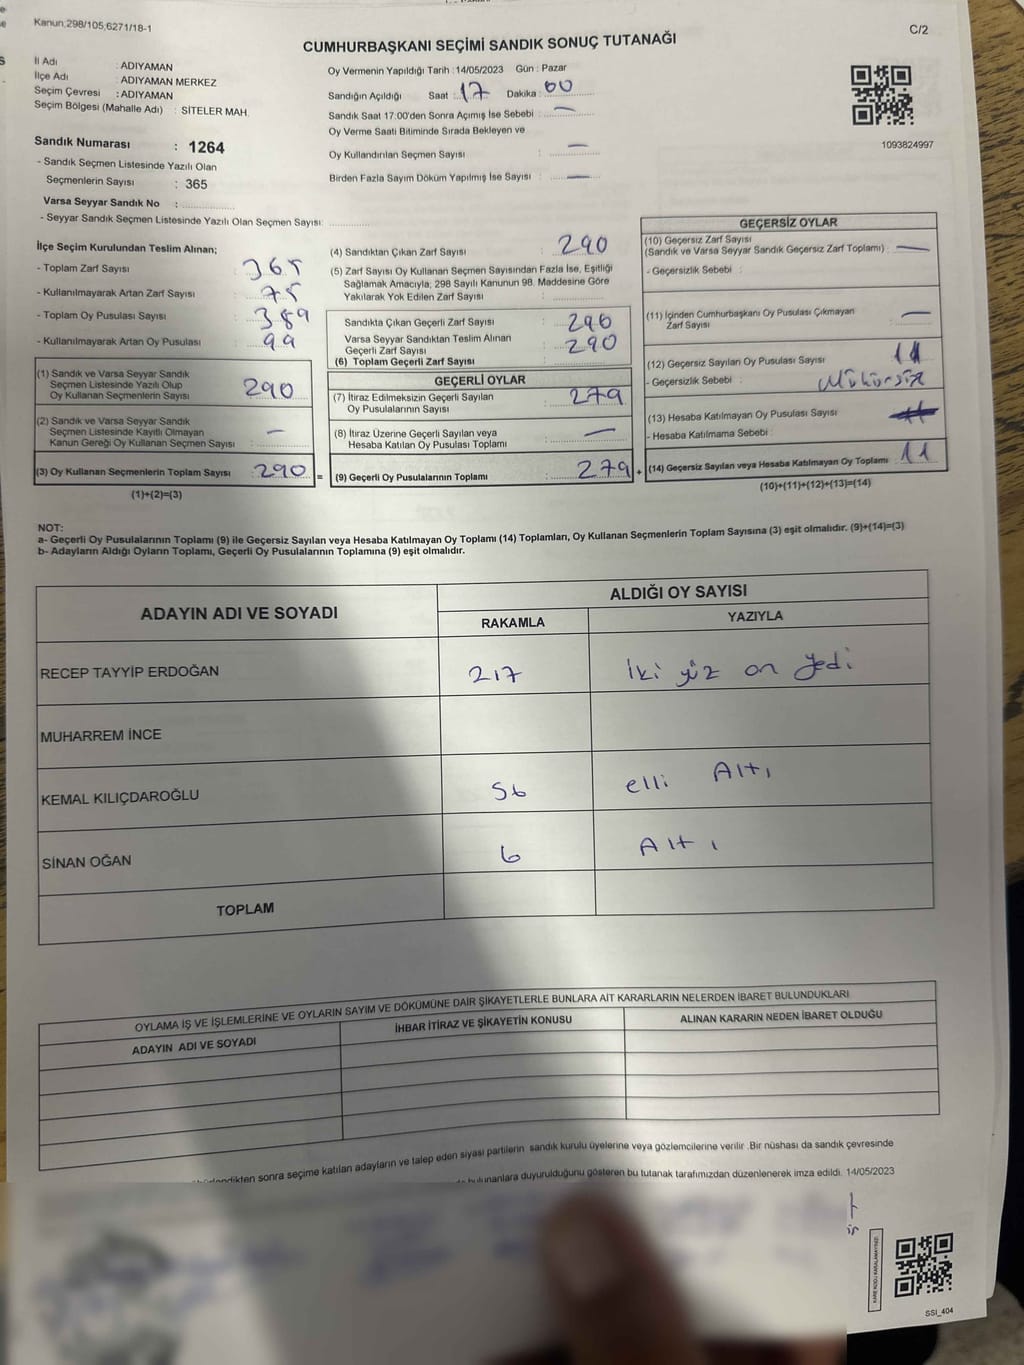 Kanun;298/105,6271/18-1
C/2
CUMHURBAŞKANI SEÇİMİ SANDIK SONUÇ TUTANAĞI
İl Adı : ADIYAMAN
İlçe Adı : ADIYAMAN MERKEZ
Seçim Çevresi : ADIYAMAN
Seçim Bölgesi (Mahalle Adı) : SİTELER MAH.
Oy Vermenin Yapıldığı Tarih : 14/05/2023 Gün : Pazar
Sandığın Açıldığı Saat : 17 Dakika : 00
Sandık Saat 17:00'den Sonra Açımış İse Sebebi : —
Oy Verme Saati Bitiminde Sırada Bekleyen ve
Oy Kullandırılan Seçmen Sayısı : —
Birden Fazla Sayım Döküm Yapılmış İse Sayısı : —
1093824997
Sandık Numarası : 1264
- Sandık Seçmen Listesinde Yazılı Olan
Seçmenlerin Sayısı : 365
Varsa Seyyar Sandık No :
- Seyyar Sandık Seçmen Listesinde Yazılı Olan Seçmen Sayısı:
İlçe Seçim Kurulundan Teslim Alınan;
- Toplam Zarf Sayısı : 365
- Kullanılmayarak Artan Zarf Sayısı : 75
- Toplam Oy Pusulası Sayısı : 389
- Kullanılmayarak Artan Oy Pusulası : 99
(1) Sandık ve Varsa Seyyar Sandık
Seçmen Listesinde Yazılı Olup
Oy Kullanan Seçmenlerin Sayısı : 290
(2) Sandık ve Varsa Seyyar Sandık
Seçmen Listesinde Kayıtlı Olmayan
Kanun Gereği Oy Kullanan Seçmen Sayısı : —
(3) Oy Kullanan Seçmenlerin Toplam Sayısı : 290 =
(1)+(2)=(3)
(4) Sandıktan Çıkan Zarf Sayısı : 290
(5) Zarf Sayısı Oy Kullanan Seçmen Sayısından Fazla İse, Eşitliği
Sağlamak Amacıyla; 298 Sayılı Kanunun 98. Maddesine Göre
Yakılarak Yok Edilen Zarf Sayısı :
Sandıkta Çıkan Geçerli Zarf Sayısı : 290
Varsa Seyyar Sandıktan Teslim Alınan
Geçerli Zarf Sayısı : 290
(6) Toplam Geçerli Zarf Sayısı :
GEÇERLİ OYLAR
(7) İtiraz Edilmeksizin Geçerli Sayılan
Oy Pusulalarının Sayısı : 279
(8) İtiraz Üzerine Geçerli Sayılan veya
Hesaba Katılan Oy Pusulası Toplamı : —
(9) Geçerli Oy Pusulalarının Toplamı : 279 +
GEÇERSİZ OYLAR
(10) Geçersiz Zarf Sayısı
(Sandık ve Varsa Seyyar Sandık Geçersiz Zarf Toplamı) : —
- Geçersizlik Sebebi :
(11) İçinden Cumhurbaşkanı Oy Pusulası Çıkmayan
Zarf Sayısı : —
(12) Geçersiz Sayılan Oy Pusulası Sayısı : 11
- Geçersizlik Sebebi : Mühürsüz
(13) Hesaba Katılmayan Oy Pusulası Sayısı :
- Hesaba Katılmama Sebebi :
(14) Geçersiz Sayılan veya Hesaba Katılmayan Oy Toplamı : 11
(10)+(11)+(12)+(13)=(14)
NOT:
a- Geçerli Oy Pusulalarının Toplamı (9) ile Geçersiz Sayılan veya Hesaba Katılmayan Oy Toplamı (14) Toplamları, Oy Kullanan Seçmenlerin Toplam Sayısına (3) eşit olmalıdır. (9)+(14)=(3)
b- Adayların Aldığı Oyların Toplamı, Geçerli Oy Pusulalarının Toplamına (9) eşit olmalıdır.
ADAYIN ADI VE SOYADI
ALDIĞI OY SAYISI
RAKAMLA YAZIYLA
RECEP TAYYİP ERDOĞAN 217 İki yüz on yedi
MUHARREM İNCE
KEMAL KILIÇDAROĞLU 56 elli Altı
SİNAN OĞAN 6 Altı
TOPLAM
OYLAMA İŞ VE İŞLEMLERİNE VE OYLARIN SAYIM VE DÖKÜMÜNE DAİR ŞİKAYETLERLE BUNLARA AİT KARARLARIN NELERDEN İBARET BULUNDUKLARI
ADAYIN ADI VE SOYADI İHBAR İTİRAZ VE ŞİKAYETİN KONUSU ALINAN KARARIN NEDEN İBARET OLDUĞU
sonra seçime katılan adayların ve talep eden siyasi partilerin sandık kurulu üyelerine veya gözlemcilerine verilir .Bir nüshası da sandık çevresinde
bulunanlara duyurulduğunu gösteren bu tutanak tarafımızdan düzenlenerek imza edildi. 14/05/2023
KARE KODU KARALAMAYINIZ!
SSI_404